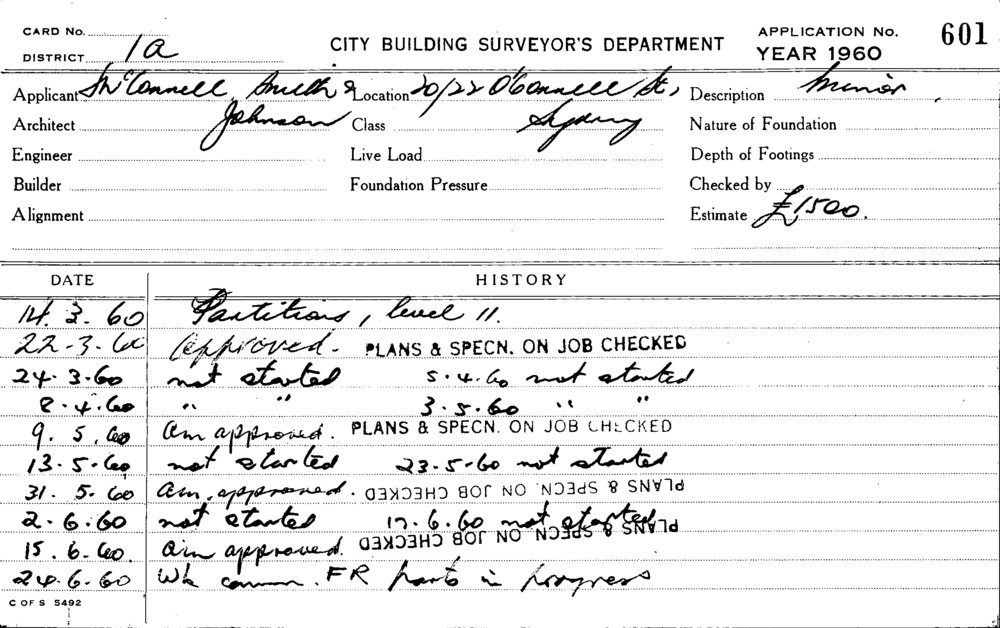 CARD No. APPLICATION No. 601
DISTRICT 1a CITY BUILDING SURVEYOR'S DEPARTMENT YEAR 1960
Applicant McConnell Smith & Location 20/22 O'Connell St., Description Minor.
Architect Johnson Class Sydney Nature of Foundation
Engineer Live Load Depth of Footings
Builder Foundation Pressure Checked by
Alignment Estimate £1500.
DATE HISTORY
14. 3. 60 Partitions, level 11.
22-3-60 Approved. PLANS & SPECN. ON JOB CHECKED
24-3-60 not started 5.4.60 not started
8.4.60 " " 3.5.60 " "
9. 5. 60 Am approved. PLANS & SPECN. ON JOB CHECKED
13.5.60 not started 23-5-60 not started
31. 5. 60 Am. approved. PLANS & SPECN. ON JOB CHECKED
2.6.60 not started 17.6.60 not started
15. 6. 60. Am approved. PLANS & SPECN. ON JOB CHECKED
24.6.60 Wk comm. FR parts in progress
C OF S 5492